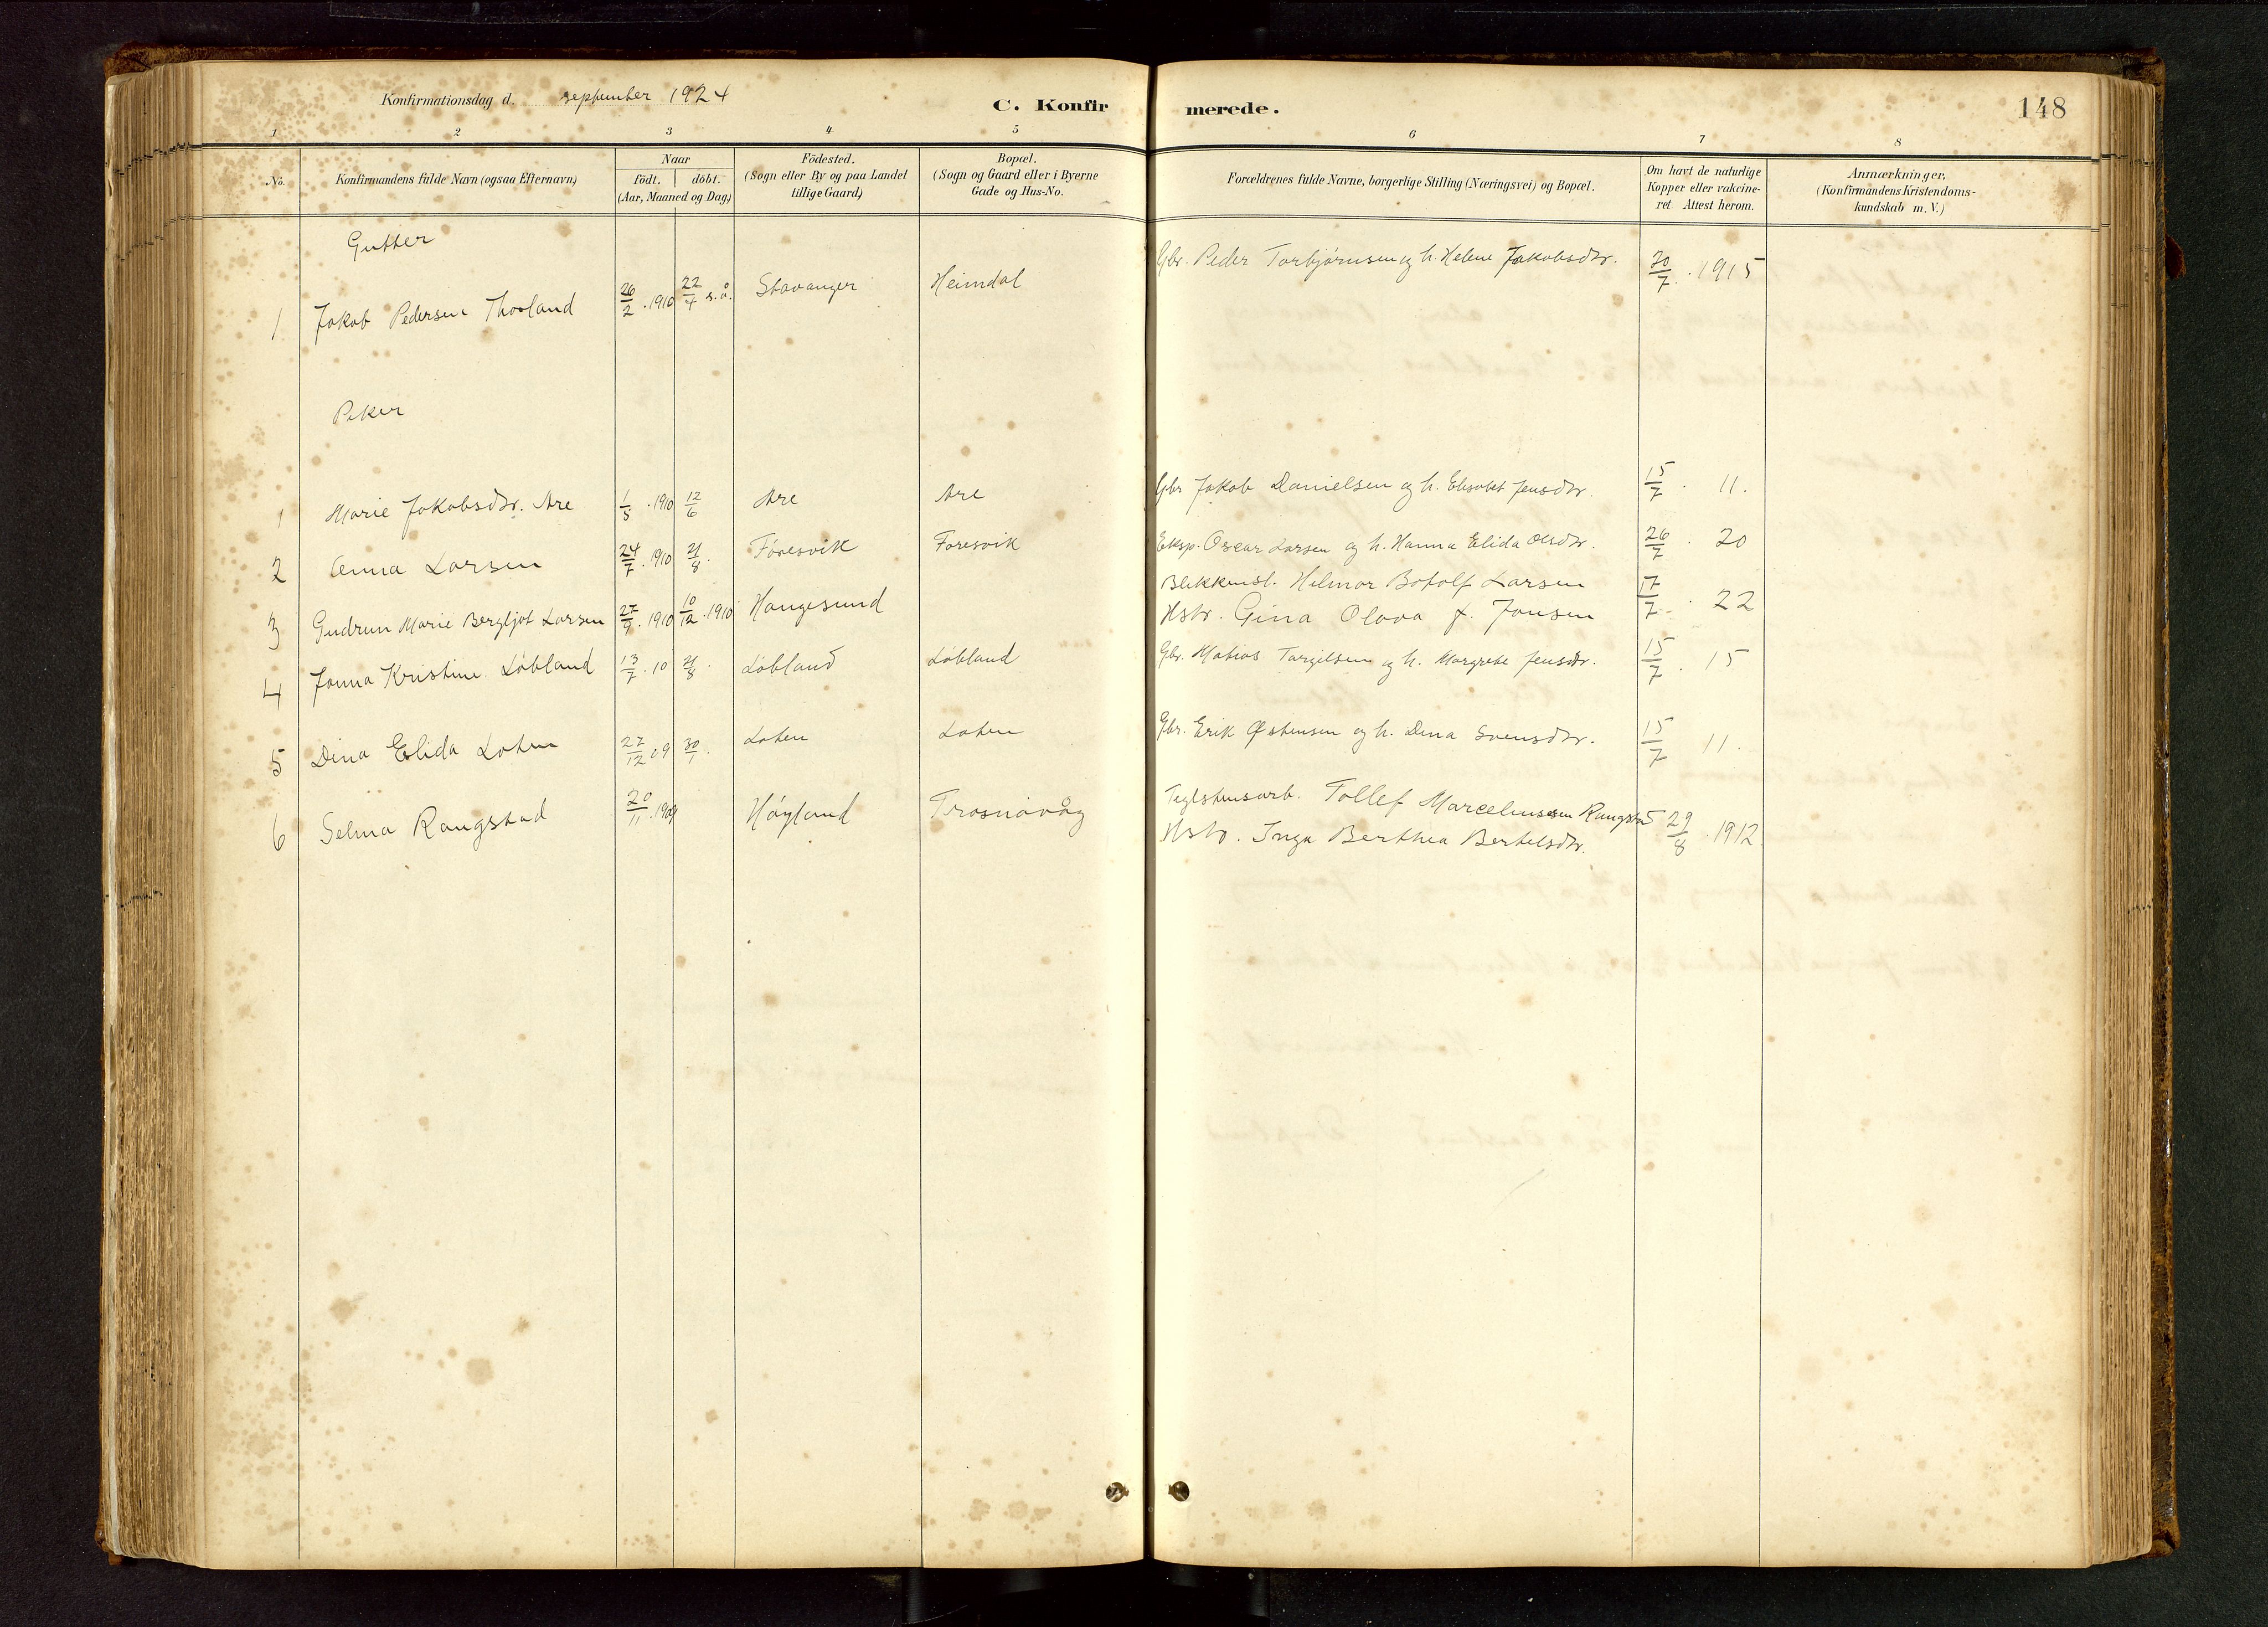 Konfirmationsdag d. september 1924
C. Konfirmerede.
148
1 2 3 4 5 6 7 8
No.
Konfirmandens fulde Navn (ogsaa Efternavn)
Naar
født. døbt.
(Aar, Maaned og Dag.)
Födested.
(Sogn eller By og paa Landet
tillige Gaard)
Bopæl.
(Sogn og Gaard eller i Byerne
Gade og Hus-No.
Forældrenes fulde Navne, borgerlige Stilling (Næringsvei) og Bopæl.
Om havt de naturlige
Kopper eller vakcine-
ret. Attest herom.
Anmærkninger.
(Konfirmandens Kristendoms-
kundskab m. V.)
Gutter
1 Jakob Pedersen Thorland 26/2. 1910 22/4 s.å. Stavanger Heimdal Gbr. Peder Torbjørnsen og h. Helene Jakobsdtr. 20/7. 1915
Piker
1 Marie Jakobsdtr. Are 1/5. 1910 12/6 Are Are Gbr Jakob Danielsen og h. Elisabet Jensdtr. 15/7. 11.
2 Anna Larsen 24/7. 1910 21/8. Føresvik Føresvik Eksp. Oscar Larsen og h. Hanna Elida Olsdtr. 26/7. 20
3 Gudrun Marie Bergljot Larsen 27/9. 1910 10/12. 1910 Haugesund Blikkensl. Helmar Botolf Larsen 17/7. 22
Hstr. Gina Olava f. Jonsen
4 Janna Kristine Løbland 13/7. 10 21/8. Løbland Løbland Gbr. Matias Targilsen og h. Margrete Jensdtr. 15/7. 15
5 Dina Elida Loten 27/12 09 30/1. Loten Loten Gbr. Erik Østensen og h. Dina Svensdtr. 15/7 11.
6 Selma Rangstad 20/11. 1909 Høyland Trosnavåg Teglstensarb. Tollef Marcelinussen Rangstad 29/8. 1912
Hstr. Inga Berthea Bertelsdtr.